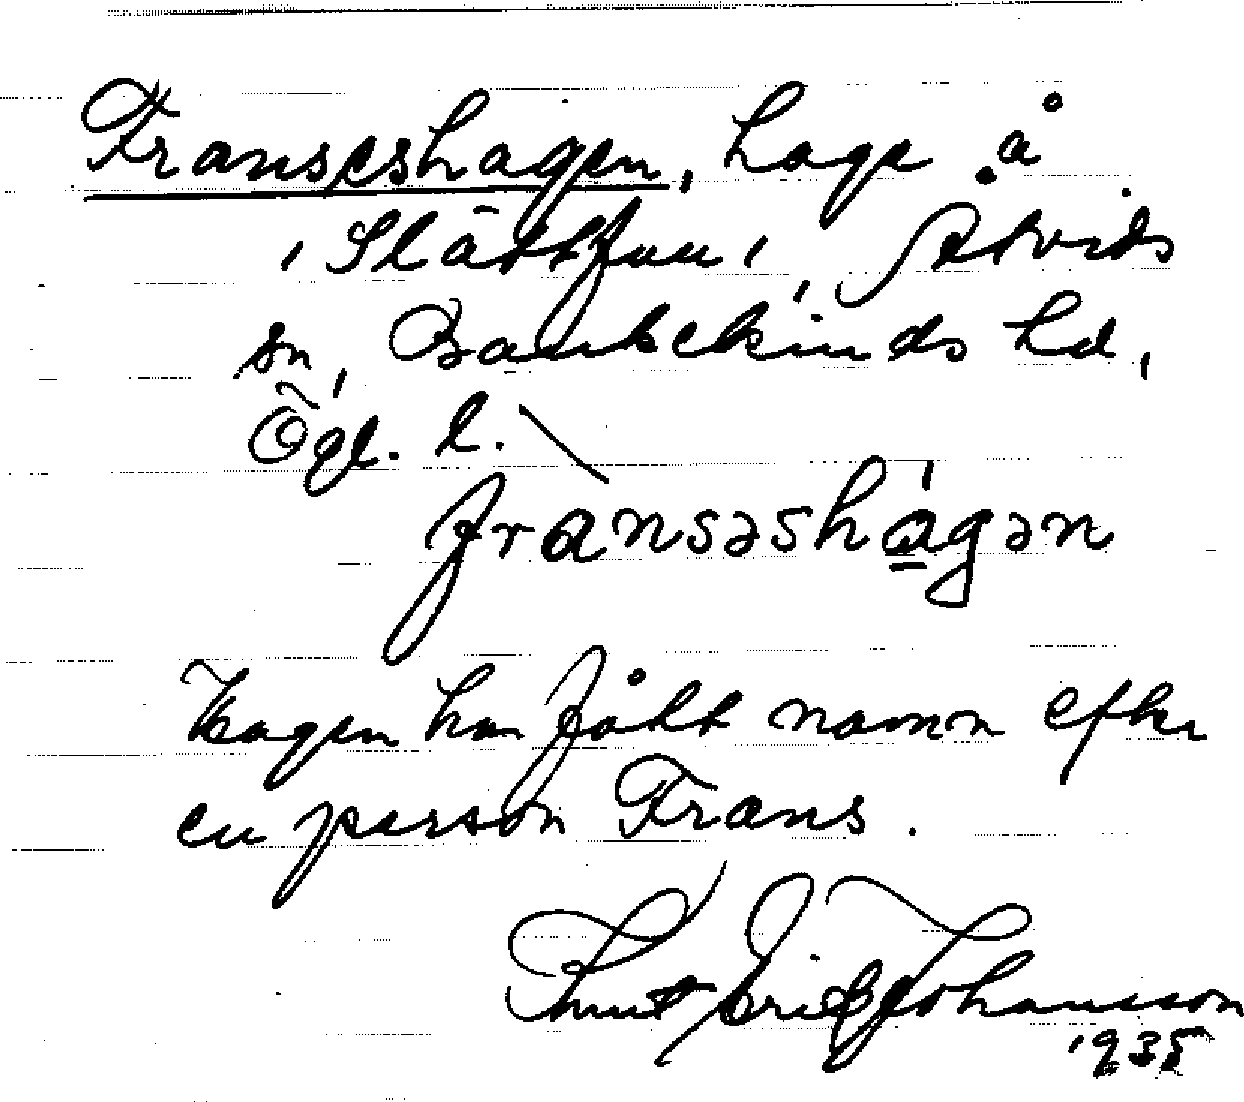 Franseshagen, hage å
'Slättfall', Åtvids
sn, Bankekinds hd,
Ögl. l.
fransəshágən
Hagen har fått namn efter
en person Frans.
Knut Erik Johansson
1935